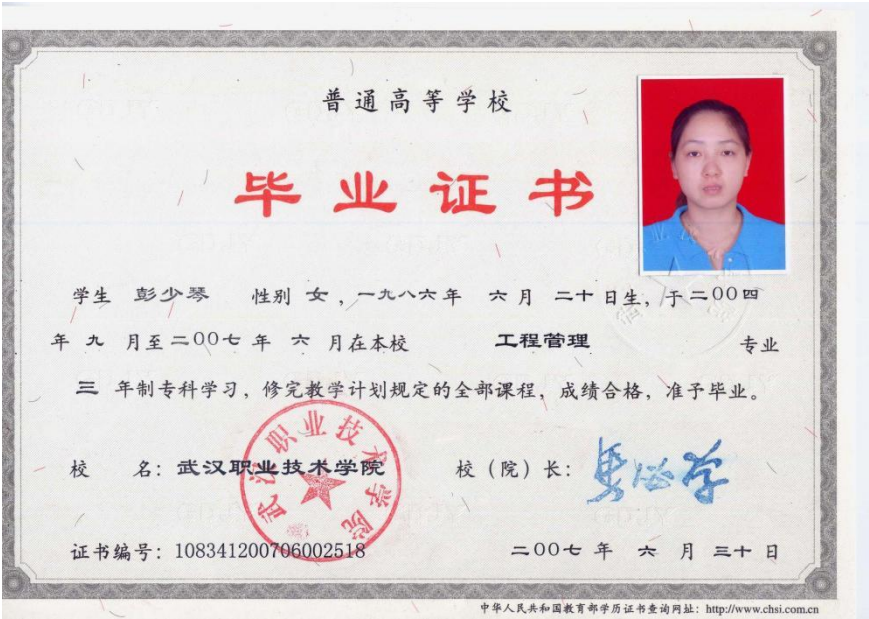 普通高等学校
毕业证书
学生 彭少琴 性别 女，一九八六年 六月 二十日生，于二〇〇四
年 九 月至二〇〇七年 六 月在本校 工程管理 专业
三 年制专科学习，修完教学计划规定的全部课程，成绩合格，准予毕业。
武汉职业技术学院
校 名：武汉职业技术学院 校（院）长：
证书编号：108341200706002518 二〇〇七年 六 月 三十日
中华人民共和国教育部学历证书查询网址：http://www.chsi.com.cn